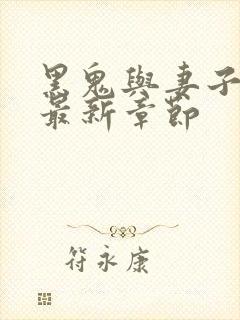 黑鬼與妻子
最新章節
符永康